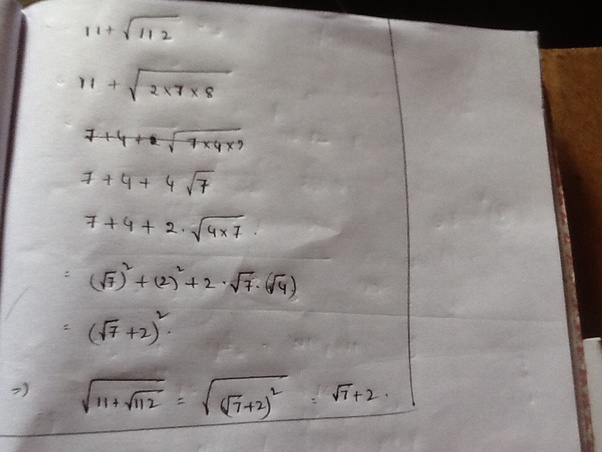 11 + √112
11 + √(2×7×8)
7 + 4 + 4 √7
7 + 4 + 2 · √(4×7) .
= (√7)² + (2)² + 2 · √7 · (√4)
= (√7 + 2)² .
⇒ √(11 + √112) = √((√7+2)²) = √7 + 2 .